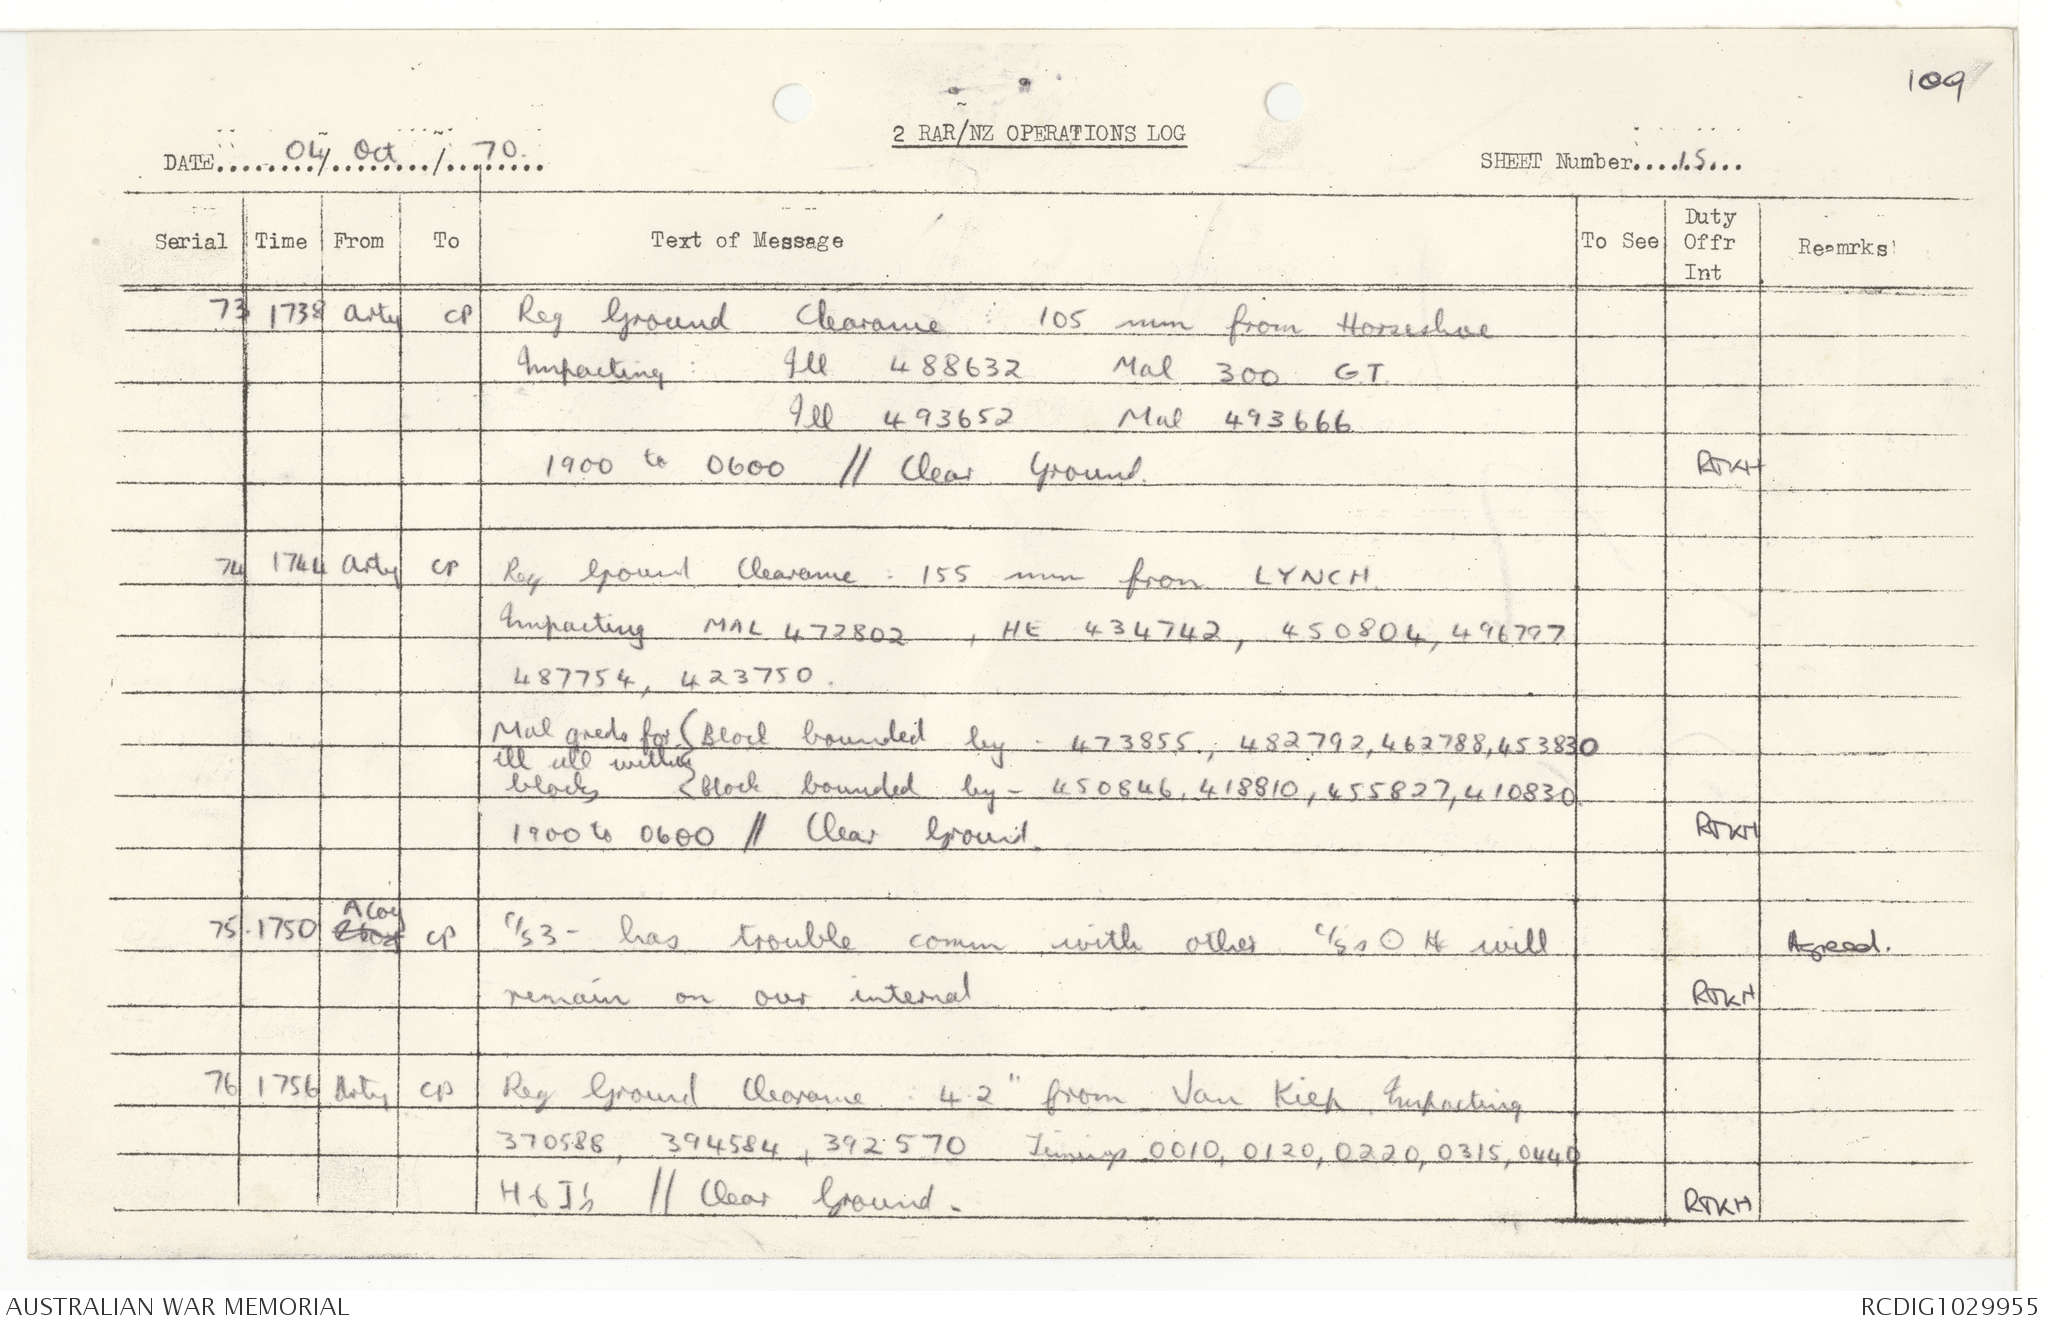 109
2 RAR/NZ OPERATIONS LOG
DATE 04/ Oct / 70. SHEET Number 15
Serial Time From To Text of Message To See Duty Offr Int Reamrks
73 1738 Arty CP Reg Ground Clearance : 105 mm from Horseshoe
Impacting : Ill 488632 Mal 300 G.T.
Ill 493652 Mal 493666
1900 to 0600 // Clear Ground. RJKH
74 1744 Arty CP Reg Ground Clearance : 155 mm from LYNCH
Impacting MAL 472802 , HE 434742, 450804, 496797
487754, 423750.
Mal greds for { Block bounded by - 473855, 482792, 462788, 453830
ill all within
blocks { Block bounded by - 450846, 418810, 455827, 410830
1900 to 0600 // Clear Ground. RJKH
A Coy
75 1750 CP C/S 3 - has trouble comm with other C/Ss O He will Agreed.
remain on our internal RJKH
76 1756 Arty CP Reg Ground Clearance : 4.2" from Van Kiep Impacting
370588, 394584, 392570 Timings 0010, 0120, 0220, 0315, 0440
H & I's // Clear Ground. RJKH
AUSTRALIAN WAR MEMORIAL RCDIG1029955